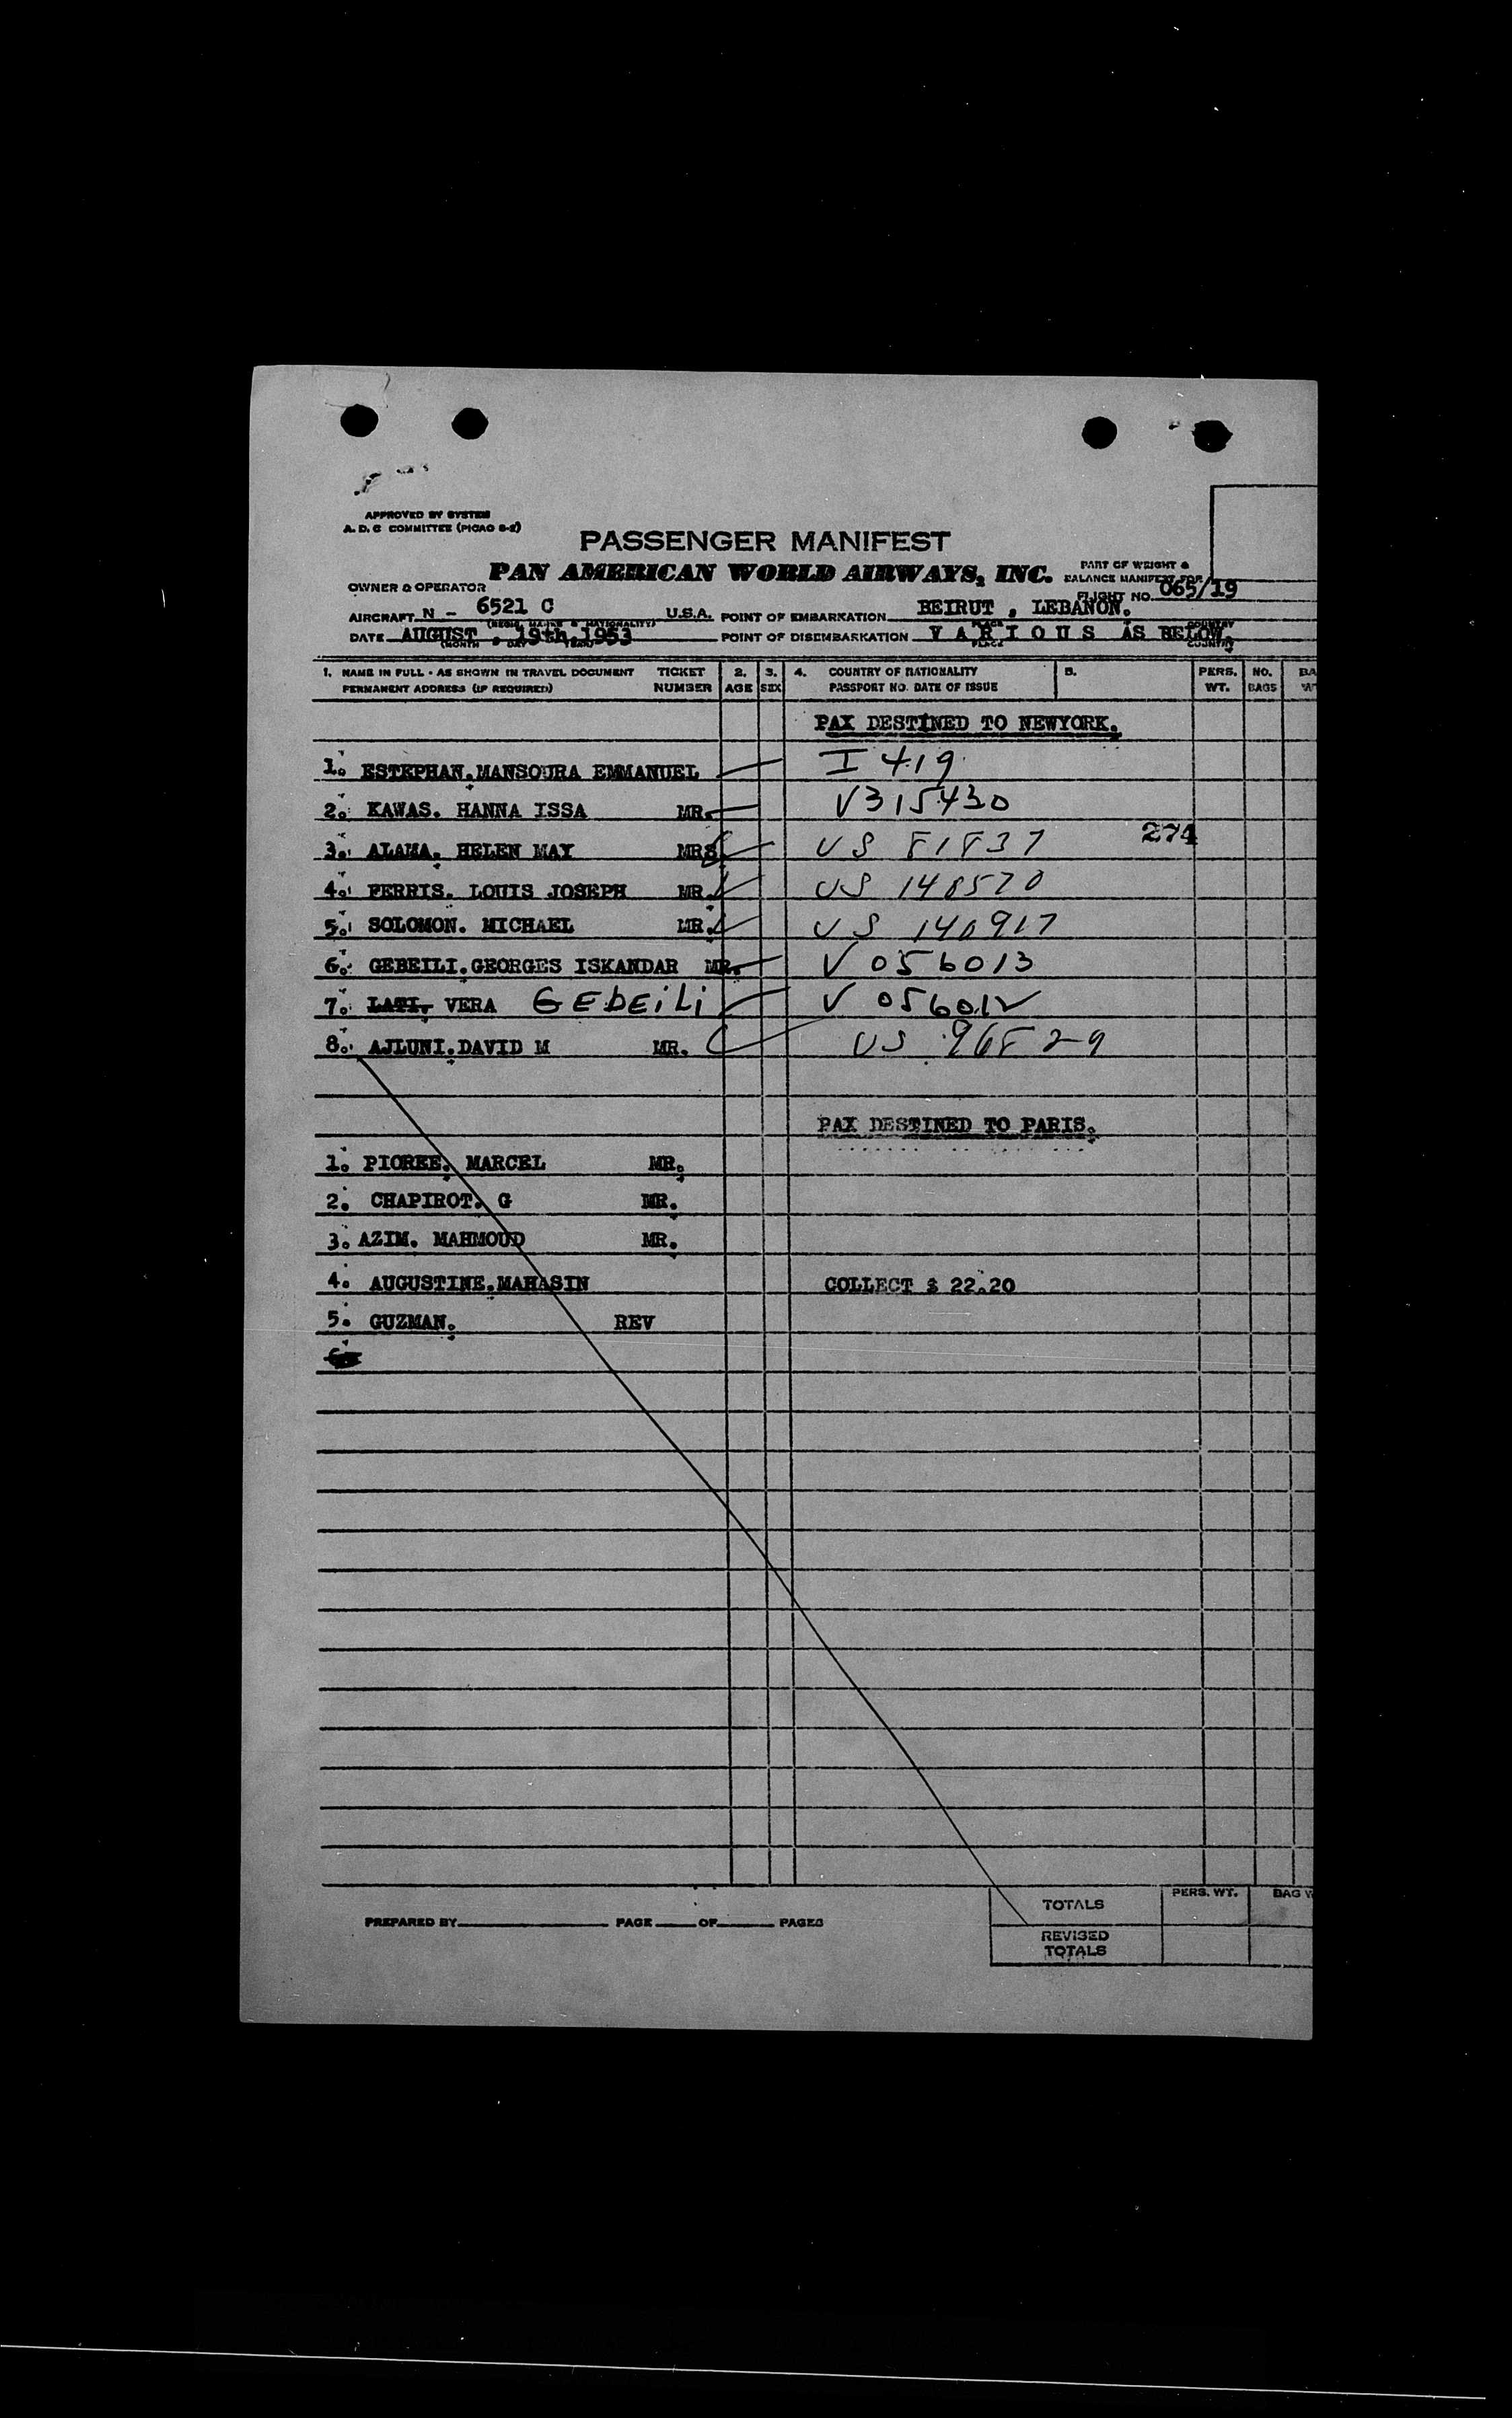 APPROVED BY SYSTEM
A. D. C COMMITTEE (PICAO S-2)
PASSENGER MANIFEST
OWNER & OPERATOR PAN AMERICAN WORLD AIRWAYS, INC. PART OF WEIGHT & BALANCE MANIFEST FOR
FLIGHT NO. 065/19
AIRCRAFT N - 6521 C U.S.A. POINT OF EMBARKATION BEIRUT , LEBANON.
(REGIS. MARKS & NATIONALITY) PLACE COUNTRY
DATE AUGUST , 19th, 1953 POINT OF DISEMBARKATION V A R I O U S AS BELOW.
(MONTH DAY YEAR) PLACE COUNTRY
1. NAME IN FULL - AS SHOWN IN TRAVEL DOCUMENT TICKET 2. 3. 4. COUNTRY OF NATIONALITY 5. PERS. NO. BA
PERMANENT ADDRESS (IF REQUIRED) NUMBER AGE SEX PASSPORT NO. DATE OF ISSUE WT. BAGS
PAX DESTINED TO NEWYORK.
1. ESTEPHAN. MANSOURA EMMANUEL I 419
2. KAWAS. HANNA ISSA MR. V315430
3. ALAMA. HELEN MAY MRS. US 81837 274
4. FERRIS. LOUIS JOSEPH MR. US 148570
5. SOLOMON. MICHAEL MR. US 140917
6. GEBEILI. GEORGES ISKANDAR MR. V 056013
7. LATI. VERA GEbEiLi V 056012
8. AJLUNI. DAVID M MR. US 96829
PAX DESTINED TO PARIS.
1. PIOREE. MARCEL MR.
2. CHAPIROT. G MR.
3. AZIM. MAHMOUD MR.
4. AUGUSTINE. MAHASIN COLLECT $ 22.20
5. GUZMAN. REV
TOTALS PERS. WT. BAG W
PREPARED BY PAGE OF PAGES
REVISED
TOTALS